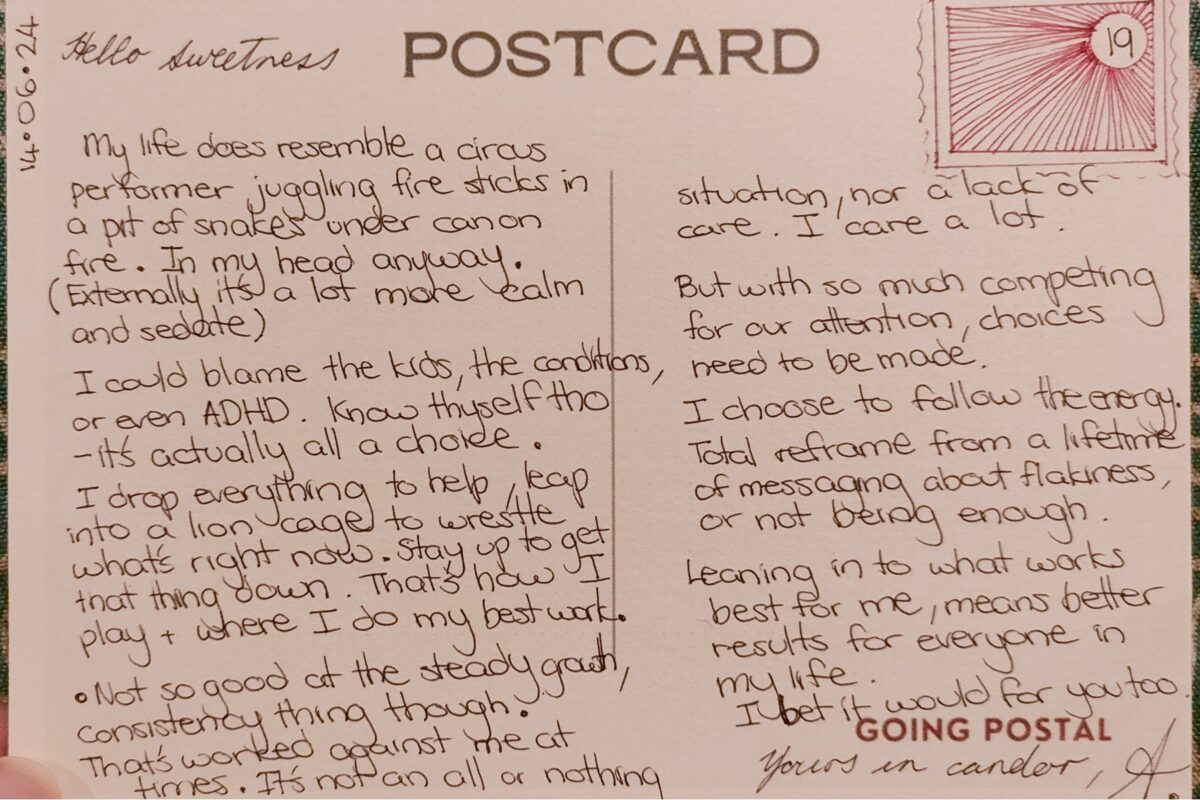 14.06.24
Hello sweetness
POSTCARD
19
My life does resemble a circus
performer juggling fire sticks in
a pit of snakes under canon
fire. In my head anyway.
(Externally it's a lot more calm
and sedate)
I could blame the kids, the conditions,
or even ADHD. Know thyself tho
- it's actually all a choice.
I drop everything to help, leap
into a lion cage to wrestle
what's right now. Stay up to get
that thing down. That's how I
play + where I do my best work.
• Not so good at the steady growth,
consistency thing though.
That's worked against me at
times. It's not an all or nothing
situation, nor a lack of
care. I care a lot.
But with so much competing
for our attention, choices
need to be made.
I choose to follow the energy.
Total reframe from a lifetime
of messaging about flakiness,
or not being enough.
Leaning in to what works
best for me, means better
results for everyone in
my life.
I bet it would for you too.
GOING POSTAL
Yours in candor, A.